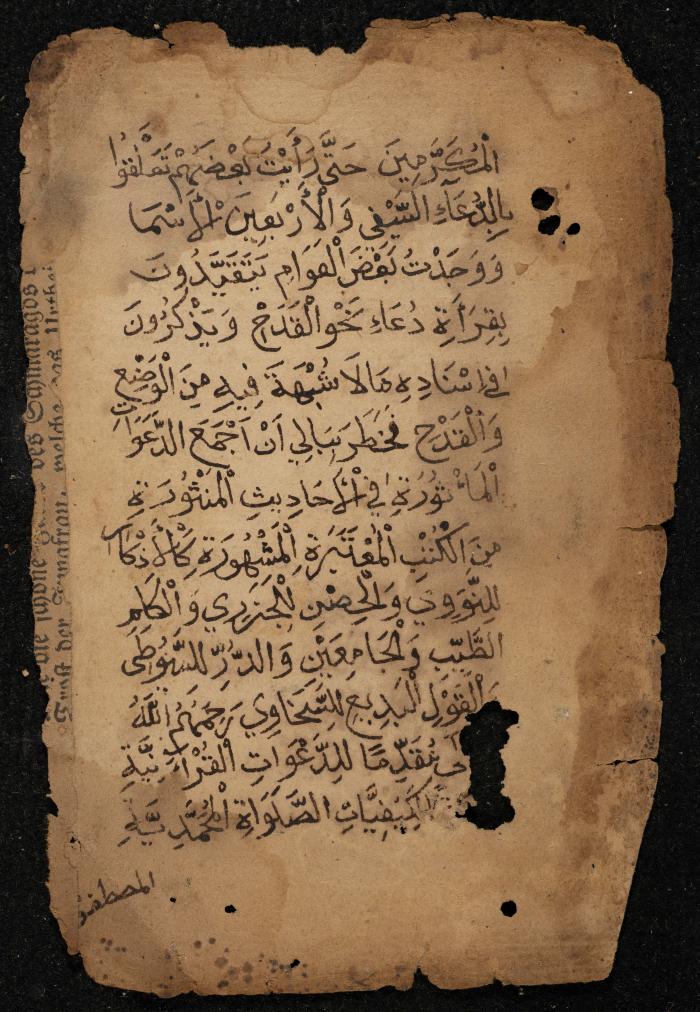 الْمُكَرَّمِينَ حَتَّى رَأَيْتُ بَعْضَهُمْ تَعَلَّقُوا
بِالدُّعَاءِ السَّيْفِي وَالْأَرْبَعِينَ الْأَسْمَا
وَوَجَدْتُ بَعْضَ الْعَوَامِ يَتَقَيَّدُونَ
بِقِرَأَةِ دُعَاءِ نَحْوِ الْقَدَحْ وَيَذْكُرُونَ
فِي إِسْنَادِهِ مَا لَا شُبْهَةَ فِيهِ مِنَ الْوَضْعِ
وَالْقَدْحِ فَخَطَرَ بِبَالِي أَنْ أَجْمَعَ الدَّعَوَا
الْمَأْثُورَةِ فِي الْأَحَادِيثِ الْمَنْثُورَةِ
مِنَ الْكُتُبِ الْمُعْتَبَرَةِ الْمَشْهُورَةِ كَالْأَذْكَا
لِلنَّوَوِي وَالْحِصْنِ لِلْجَزَرِي وَالْكَلِمِ
الطَّيِّبِ وَالْجَامِعَيْنِ وَالدُّرِّ لِلسُّيُوطِي
وَالْقَوْلِ الْبَدِيعِ لِلسَّخَاوِي رَحِمَهُمُ اللَّهُ
مُقَدِّمًا لِلدَّعَوَاتِ الْقُرْآنِيَّةِ
لِكَيْفِيَّاتِ الصَّلَوَاةِ الْمُحَمَّدِيَّةِ
المصطفو
die schöne
des Schmaragds
der
welche das